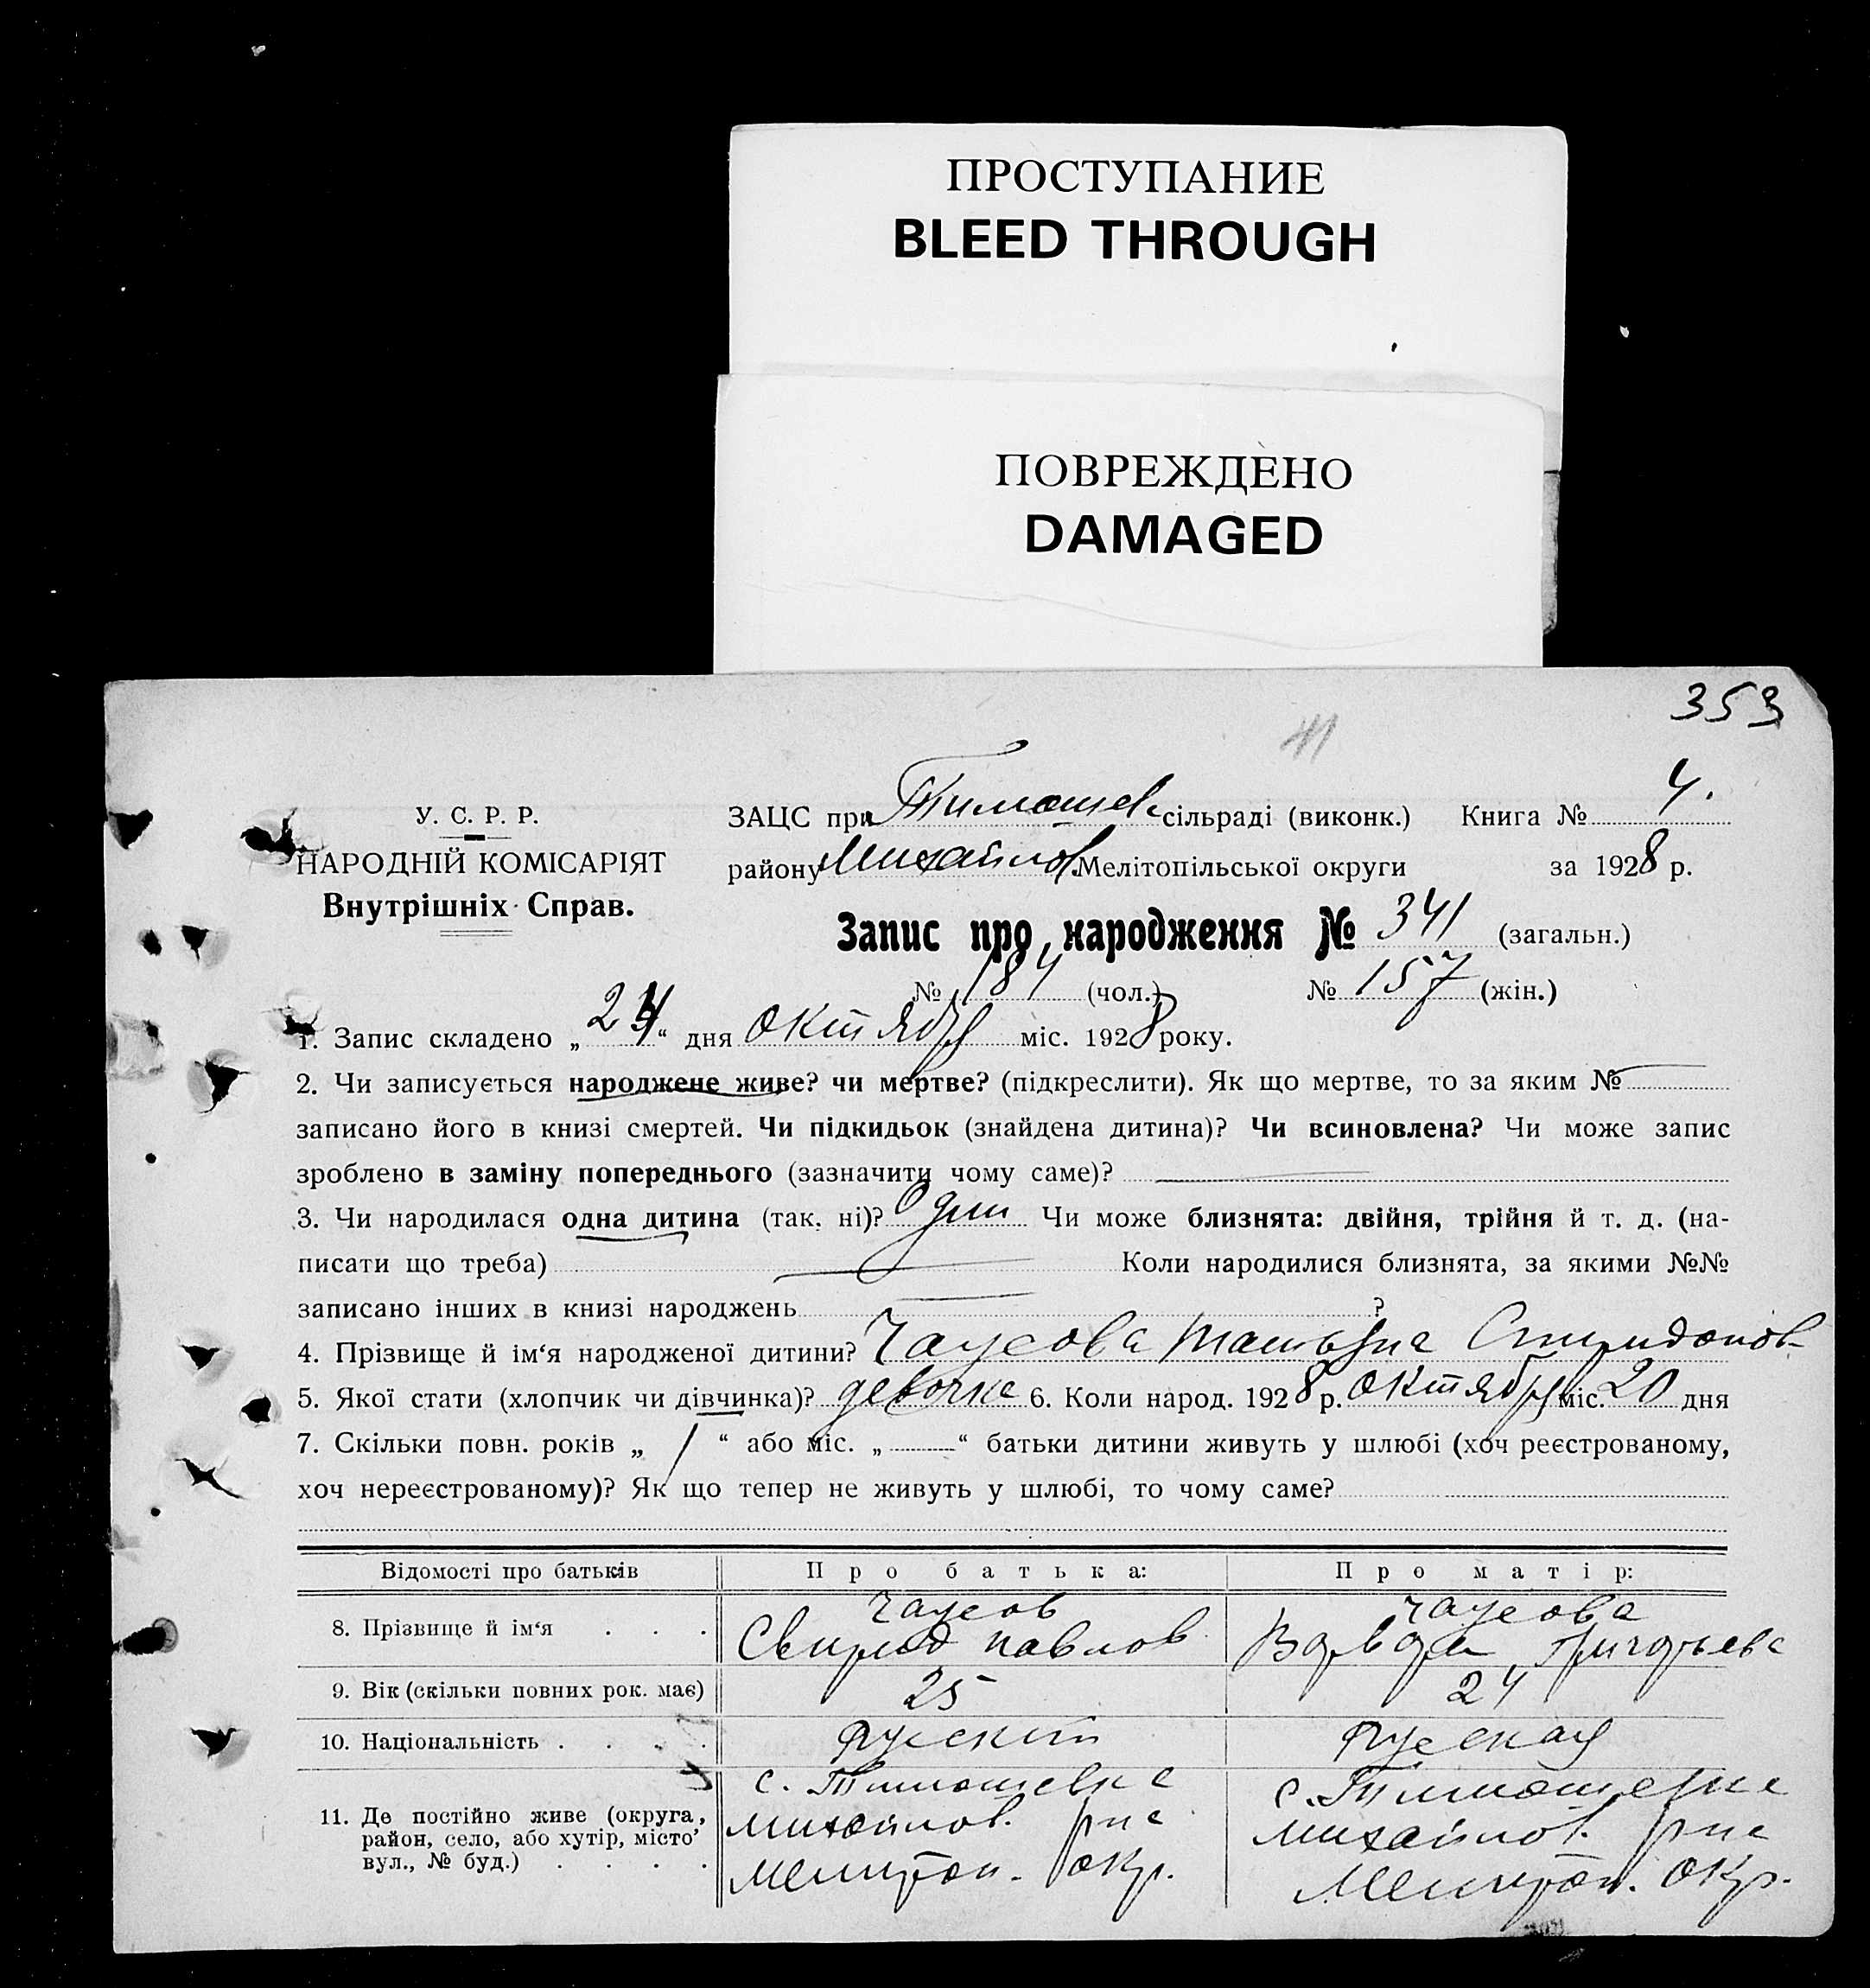 ПРОСТУПАНИЕ
BLEED THROUGH
ПОВРЕЖДЕНО
DAMAGED
353
У. С. Р. Р.
НАРОДНІЙ КОМІСАРІЯТ
Внутрішніх Справ.
ЗАЦС при Тимошев сільраді (виконк.) Книга № 4.
району Михайлов Мелітопільської округи за 1928 р.
Запис про народження № 341 (загальн.)
№ 184 (чол.) № 157 (жін.)
1. Запис складено „24“ дня октября міс. 1928 року.
2. Чи записується народжене живе? чи мертве? (підкреслити). Як що мертве, то за яким №
записано його в книзі смертей. Чи підкидьок (знайдена дитина)? Чи всиновлена? Чи може запис
зроблено в заміну попереднього (зазначити чому саме)?
3. Чи народилася одна дитина (так, ні)? Один Чи може близнята: двійня, трійня й т. д. (на-
писати що треба) Коли народилися близнята, за якими №№
записано інших в книзі народжень ?
4. Прізвище й ім‘я народженої дитини? Чаусова Татьяна Спиридонов-
5. Якої стати (хлопчик чи дівчинка)? девочка 6. Коли народ. 1928 р. октября міс. 20 дня
7. Скільки повн. років „ 1 “ або міс. „ “ батьки дитини живуть у шлюбі (хоч реєстрованому,
хоч нереєстрованому)? Як що тепер не живуть у шлюбі, то чому саме?
Відомості про батьків Про батька: Про матір:
8. Прізвище й ім‘я . . . Чаусов Свирид Павлов Чаусова Варвара Григорьева
9. Вік (скільки повних рок. має) 25 24
10. Національність . . . . Руский Руская
11. Де постійно живе (округа, район, село, або хутір, місто, вул., № буд.) . . . .
с. Тимошевка
Михайлов. р-на
Мелитоп. окр.
с. Тимошевка
Михайлов. р-на
Мелитоп. окр.